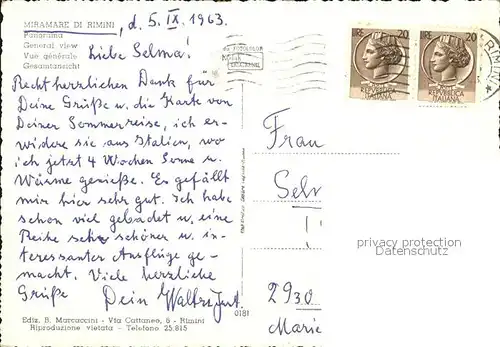 MIRAMARE DI RIMINI, d. 5. IX. 1963.
Panorama
General view
Vue générale
Gesamtansicht
Liebe Selma!
Recht herzlichen Dank für
Deine Grüße u. die Karte von
Deiner Sommerreise, ich er-
widere sie aus Italien, wo
ich jetzt 4 Wochen Sonne u.
Wärme genieße. Es gefällt
mir hier sehr gut. Ich habe
schon viel gebadet u. eine
Reihe sehr schöner u. in-
teressanter Ausflüge ge-
macht. Viele herzliche
Grüße
Dein Walter
Ediz. B. Marcaccini - Via Cattaneo, 6 - Rimini
Riproduzione vietata - Telefono 25.815
0181
LIRE 20
REPUBBLICA
ITALIANA
LIRE 20
REPUBBLICA
ITALIANA
RIMINI
Frau
Selm
privacy protection
Datenschutz
2930
Marie